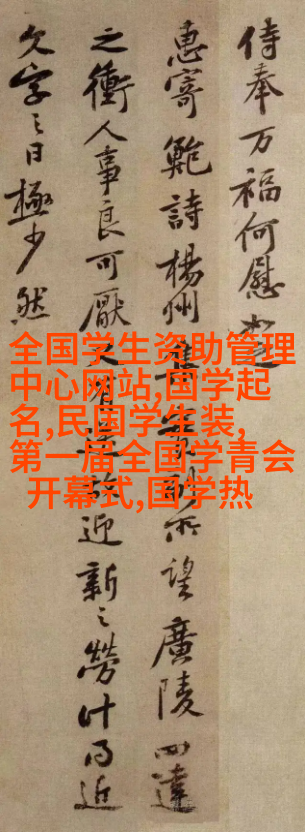 侍奉万福何慰
惠寄鮑詩楊州集所望廣陵四達
之衝人事良可厭又有送故迎新之勞計日近
欠字之日極少然
全国学生资助管理
中心网站,国学起
名,民国学生装,
第一届全国学青会
开幕式,国学热